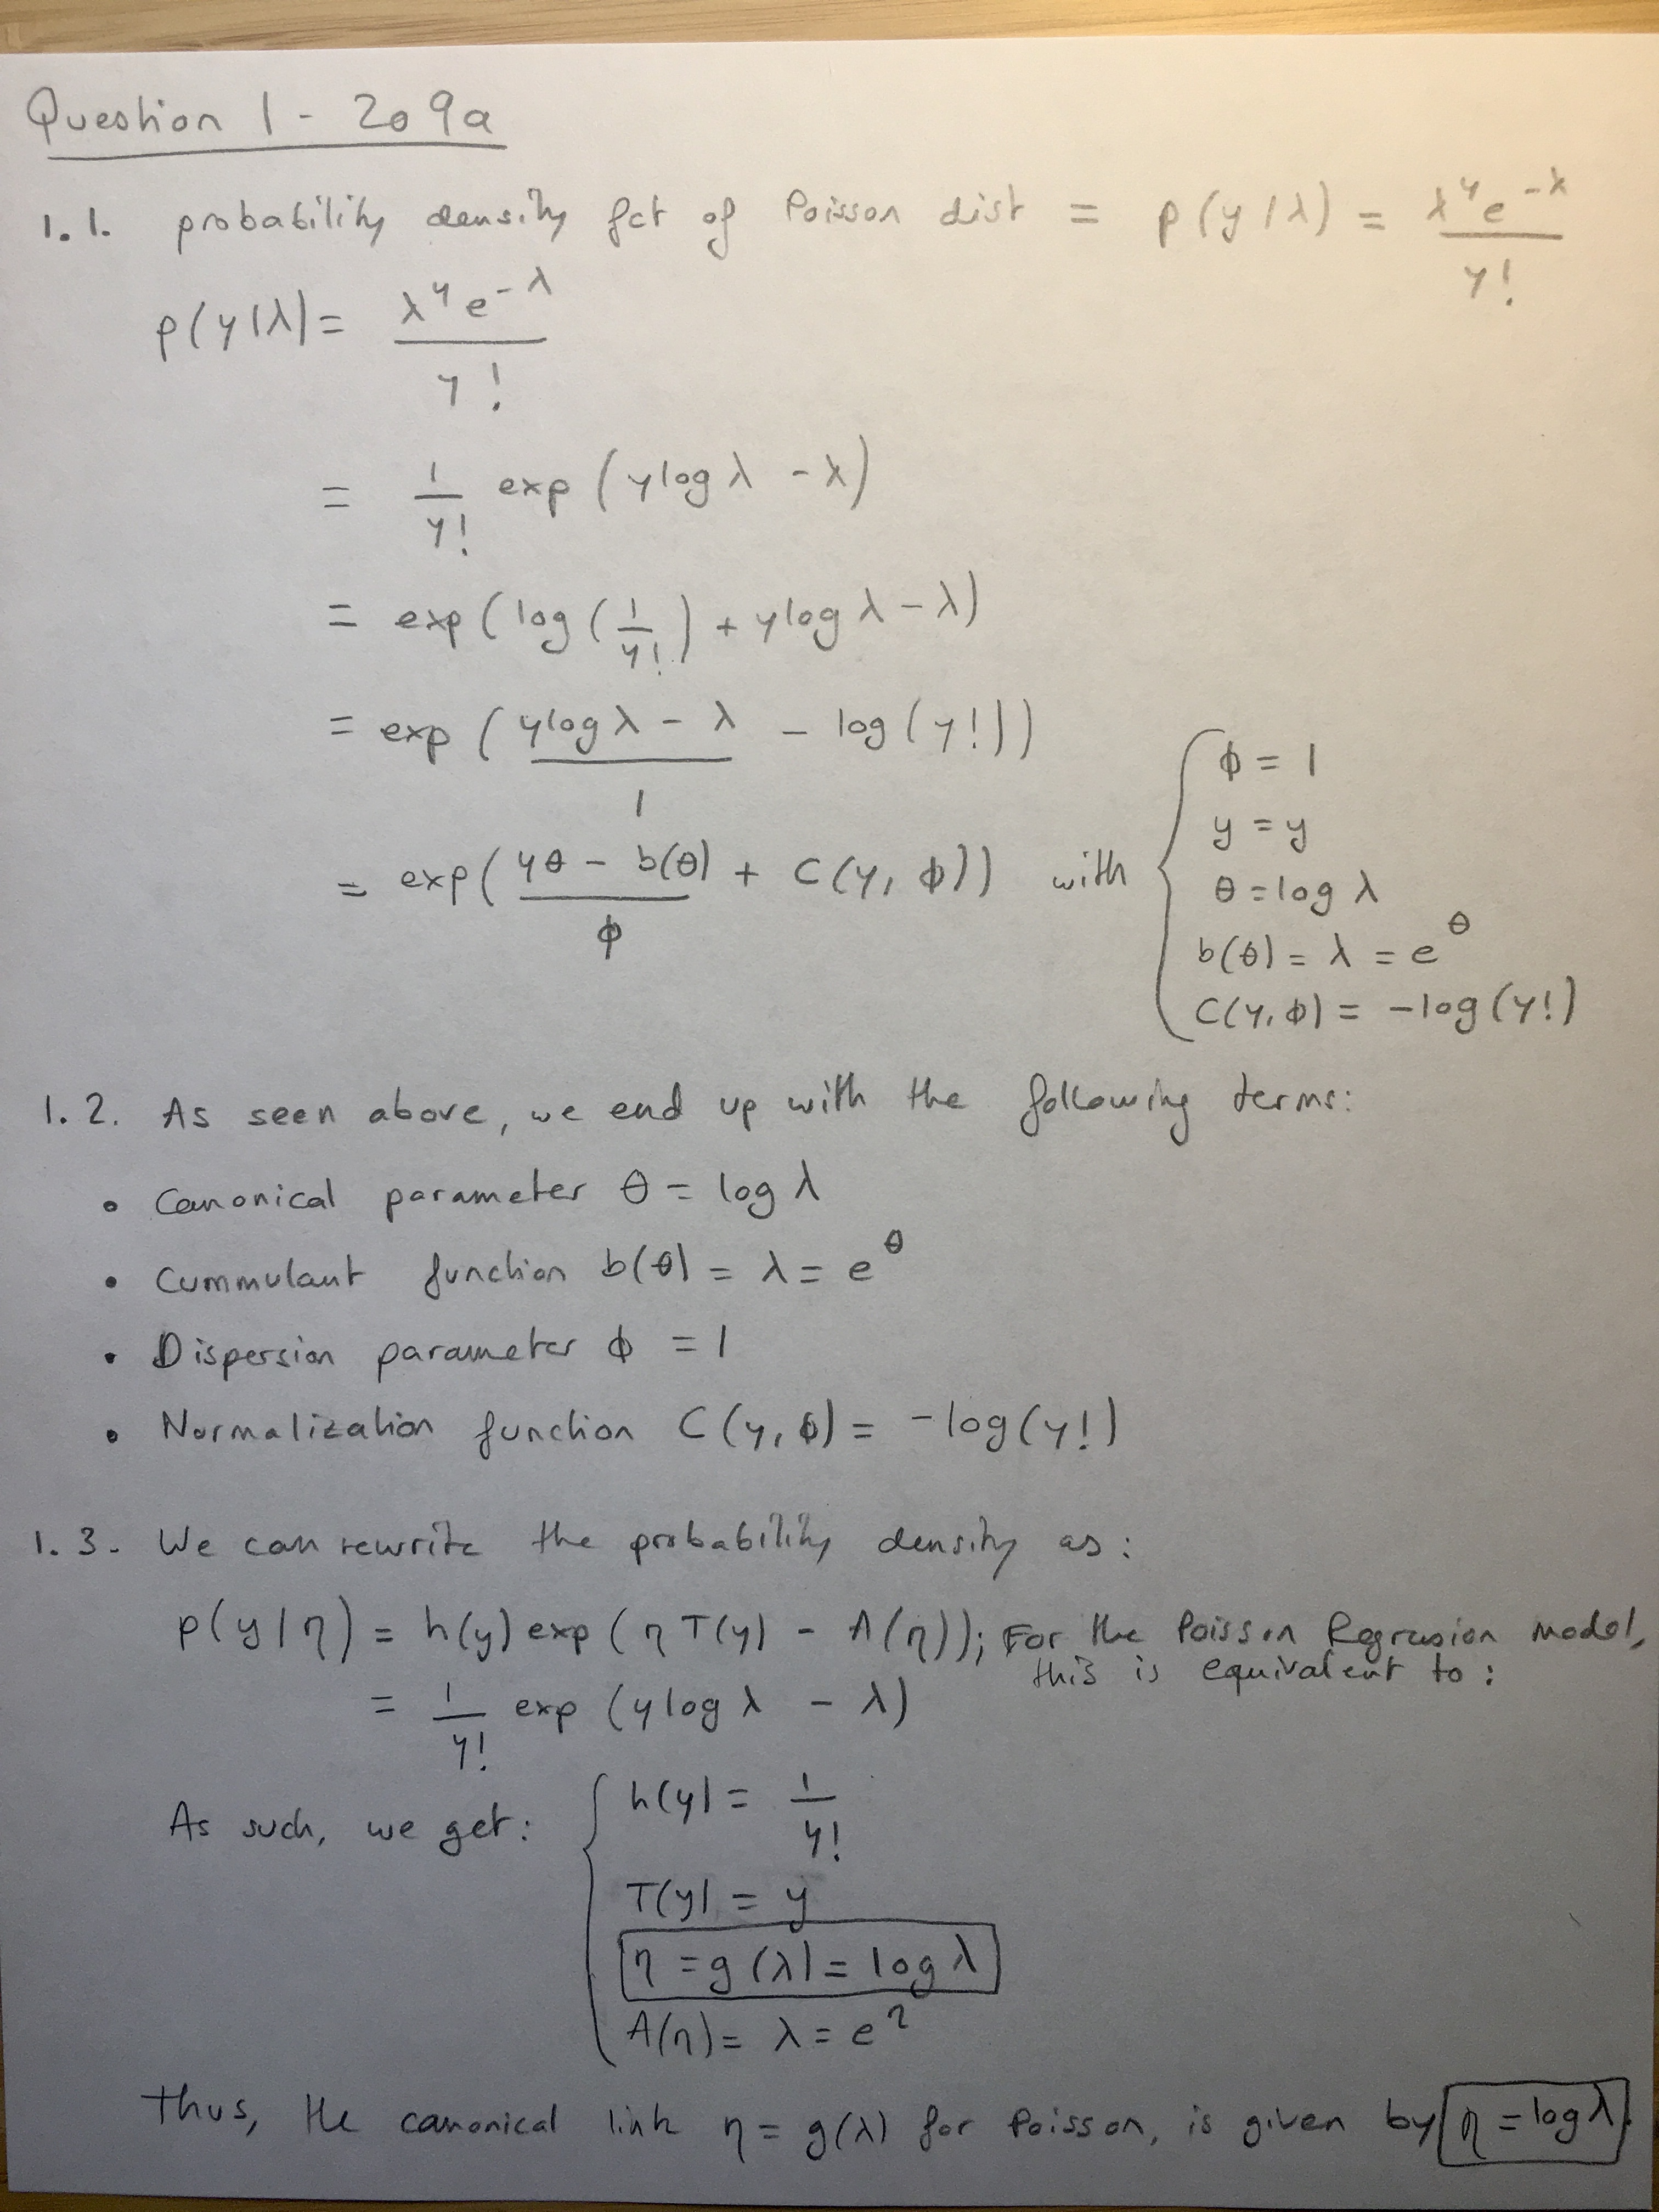 Question 1 - 209a
1.1. probability density fct of Poisson dist = p(y|λ) = λ^y e^-λ / y!
p(y|λ) = λ^y e^-λ / y!
= 1/y! exp(y log λ - λ)
= exp(log(1/y!) + y log λ - λ)
= exp((y log λ - λ)/1 - log(y!))
= exp((yθ - b(θ))/ϕ + C(y, ϕ)) with
ϕ = 1
y = y
θ = log λ
b(θ) = λ = e^θ
C(y, ϕ) = -log(y!)
1.2. As seen above, we end up with the following terms:
• Canonical parameter θ = log λ
• Cummulant function b(θ) = λ = e^θ
• Dispersion parameter ϕ = 1
• Normalization function C(y, ϕ) = -log(y!)
1.3. We can rewrite the probability density as:
p(y|η) = h(y) exp(η T(y) - A(η)); For the Poisson Regression Model,
this is equivalent to:
= 1/y! exp(y log λ - λ)
As such, we get:
h(y) = 1/y!
T(y) = y
η = g(λ) = log λ
A(η) = λ = e^η
Thus, the canonical link η = g(λ) for Poisson, is given by η = log λ.